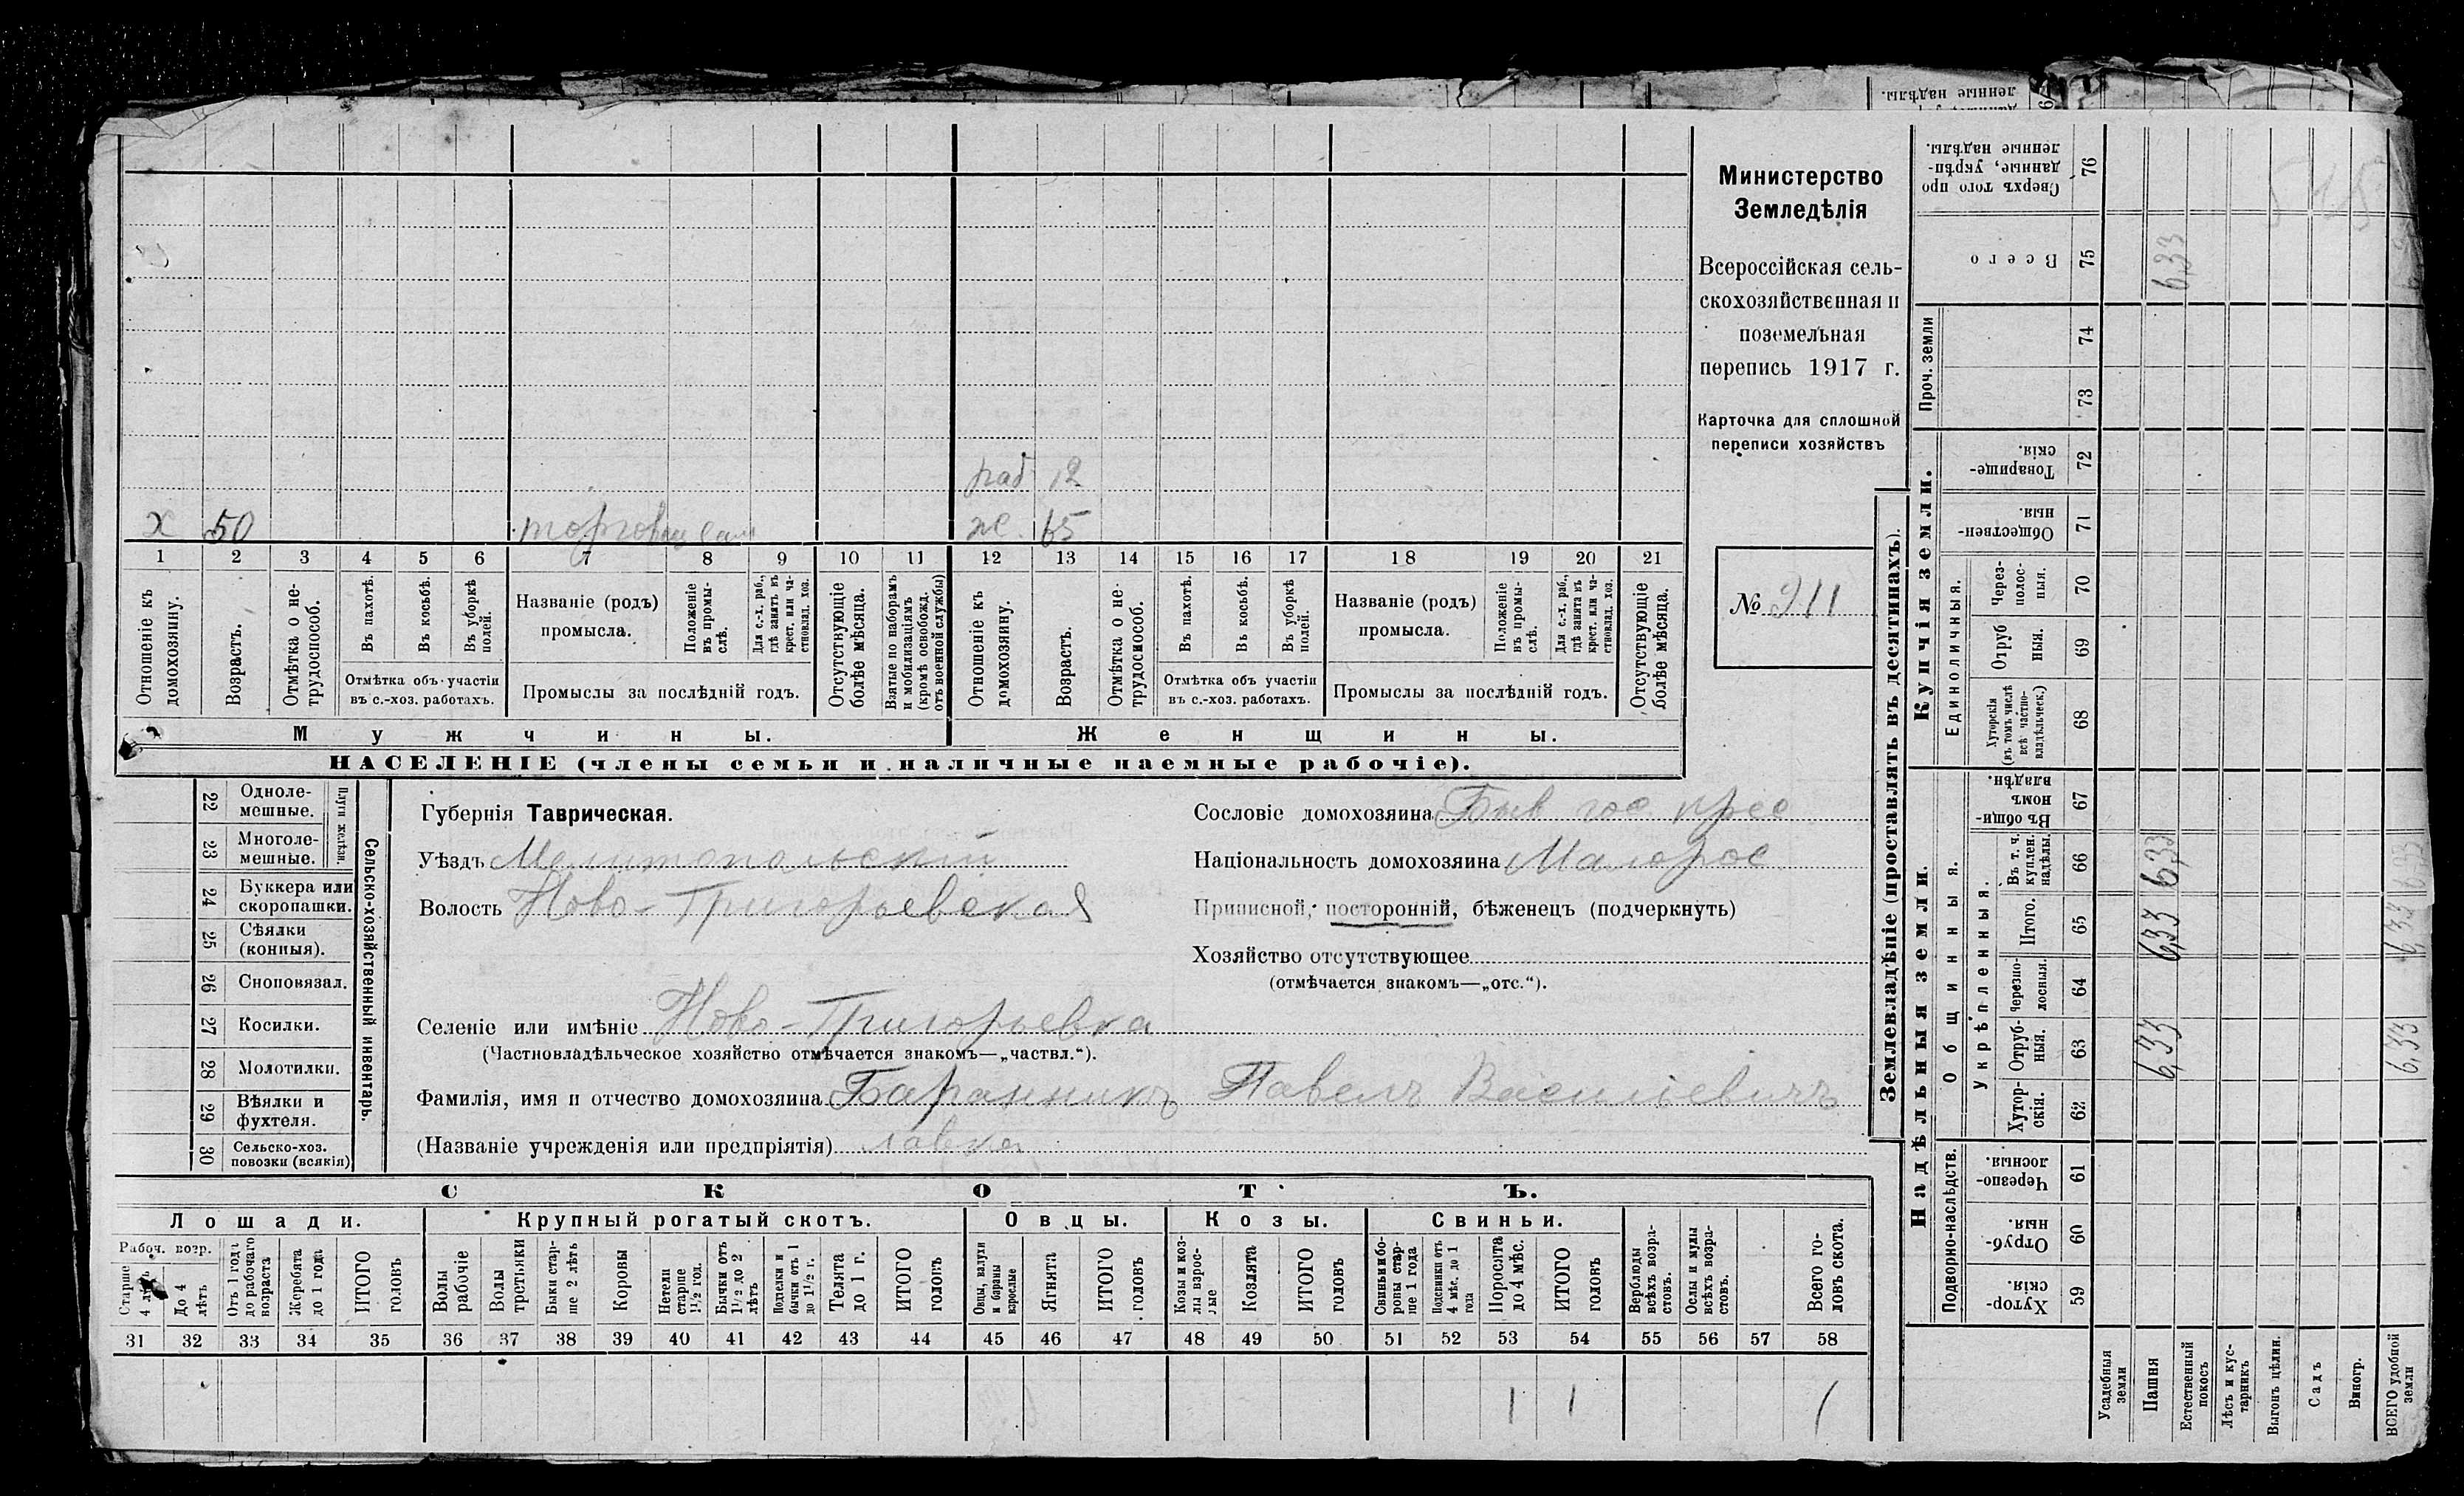 Министерство
Земледѣлія
Всероссійская сель-
скохозяйственная и
поземельная
перепись 1917 г.
Карточка для сплошной
переписи хозяйствъ
№ 911
раб 12
х 50 торговец сам ж. 65
1 2 3 4 5 6 7 8 9 10 11 12 13 14 15 16 17 18 19 20 21
Отношеніе къ домохозяину.
Возрастъ.
Отмѣтка о не-трудоспособ.
Въ пахотѣ.
Въ косьбѣ.
Въ уборкѣ полей.
Отмѣтка объ участіи
въ с.-хоз. работахъ.
Названіе (родъ)
промысла.
Положеніе въ промы-слѣ.
Для с.-х. раб., гдѣ занятъ въ крест. или ча-стновлад. хоз.
Промыслы за послѣдній годъ.
Отсутствующіе болѣе мѣсяца.
Взятые по наборамъ и мобилизаціямъ (кромѣ освобожд. отъ военной службы)
Отношеніе къ домохозяину.
Возрастъ.
Отмѣтка о не-трудоспособ.
Въ пахотѣ.
Въ косьбѣ.
Въ уборкѣ полей.
Отмѣтка объ участіи
въ с.-хоз. работахъ.
Названіе (родъ)
промысла.
Положеніе въ промы-слѣ.
Для с.-х. раб., гдѣ занята въ крест. или ча-стновлад. хоз.
Промыслы за послѣдній годъ.
Отсутствующіе болѣе мѣсяца.
Мужчины. Женщины.
НАСЕЛЕНІЕ (члены семьи и наличные наемные рабочіе).
Сельско-хозяйственный инвентарь.
Плуги желѣзн.
22 Однолемешные.
23 Многолемешные.
24 Буккера или скоропашки.
25 Сѣялки (конныя).
26 Сноповязал.
27 Косилки.
28 Молотилки.
29 Вѣялки и фухтеля.
30 Сельско-хоз. повозки (всякія)
Губернія Таврическая.
Уѣздъ Мелитопольскій
Волость Ново-Григорьевская
Сословіе домохозяина Быв гос. крес
Національность домохозяина Малорос
Приписной, посторонній, бѣженецъ (подчеркнуть)
Хозяйство отсутствующее
(отмѣчается знакомъ—„отс.“).
Селеніе или имѣніе Ново-Григорьевка
(Частновладѣльческое хозяйство отмѣчается знакомъ—„частвл.“).
Фамилія, имя и отчество домохозяина Баранникъ Павелъ Васильевичъ
(Названіе учрежденія или предпріятія) лавка
СКОТЪ.
Лошади. Крупный рогатый скотъ. Овцы. Козы. Свиньи.
Рабоч. возр.
Старше 4 лѣтъ
До 4 лѣтъ
Отъ 1 года до рабочаго возраста
Жеребята до 1 года
ИТОГО головъ
Волы рабочіе
Волы третьяки
Быки стар-ше 2 лѣтъ
Коровы
Нетели старше 1½ год.
Бычки отъ 1½ до 2 лѣтъ
Подтелки и бычки отъ 1 до 1½ г.
Телята до 1 г.
ИТОГО головъ
Овцы, валухи и бараны взрослые
Ягнята
ИТОГО головъ
Козы и коз-лы взрос-лые
Козлята
ИТОГО головъ
Свиньи и бо-ровы стар-ше 1 года
Подсвинки отъ 4 мѣс. до 1 года
Поросята до 4 мѣс.
ИТОГО головъ
Верблюды всѣхъ возра-стовъ.
Ослы и мулы всѣхъ возра-стовъ.
Всего го-ловъ скота.
31 32 33 34 35 36 37 38 39 40 41 42 43 44 45 46 47 48 49 50 51 52 53 54 55 56 57 58
1 1 1
Землевладѣніе (проставлять въ десятинахъ).
Надѣльныя земли. Купчія земли. Проч. земли
Подворно-наслѣдств.
Общинныя.
Укрѣпленныя.
Единоличныя.
Хутор-скія. 59
Отруб-ныя. 60
Черезпо-лосныя. 61
Хутор-скія. 62
Отруб-ныя. 63
Черезпо-лосныя. 64
Итого. 65
Въ т. ч. куплен. надѣлы. 66
Въ общи-номъ владѣн. 67
Хуторскія (въ томъ числѣ всѣ частно-владѣльческ.) 68
Отруб ныя. 69
Через-полос-ныя. 70
Обществен-ныя. 71
Товарище-скія. 72
73
74
Всего 75
Сверхъ того про данные, укрѣп-ленные надѣлы. 76
ленные надѣлы.
Усадебныя земли
Пашня 6,33 6,33 6,33 6,33
Естественный покосъ
Лѣсъ и кус-тарникъ
Выгонъ цѣлин.
Садъ
Виногр.
ВСЕГО удобной земли 6,33 6,33 6,33